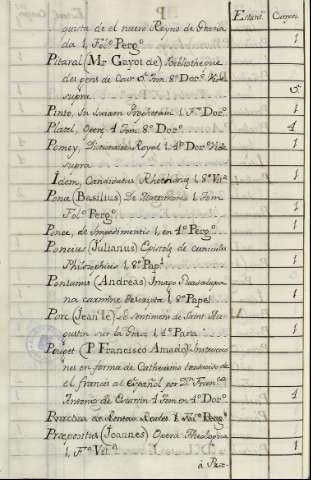 Estant. Caxon.
quista de el nuevo Reyno de Granada
da 1, Fol.º Perg.º 1
Pitaral (Mr. Gayot de) Bibliotheque
des gens de Cour 5 tom. 8º Dor.º Vide
supra 5
Pinto, In Isaiam Prophetam 1, Fº Dor.º 1
Platel, Opera, 4 Tom. 8º Dor.º 4
Pomey, Dictionaire Royal 1, 4º Dor.º Vide
supra 1
Idem, Candidatus Rhetoricæ 1, 8º Vit.ª 1
Ponce (Basilius) De Matrimonio 1, Tom.
Fol.º Perg.º 1
Ponce, de Impedimentis 1, en 4º Perg.º 1
Poncius (Julianus) Epistola de
Philosophicis 1, 8º Pap.l 1
Pontanus (Andreas) Imago Guadalupana
na carmine descripta 1, 8º Papel 1
Porc (Jean le) Les sentimens de Saint Augustin
gustin sur la Grace 1, 4º Pasta 1
Pouget (P. Francisco Amado) Instrucciones
en forma de Cathecismo traducido de
el frances al Español por Dn. Fran.co
Antonio de Escartin 4 Tom en 4º Dor.º 4
Practica de Rentas Reales 1, Fol.º Perg.º 1
Præpositus (Joannes) Opera Theologica
1, Fº Vit.ª 1